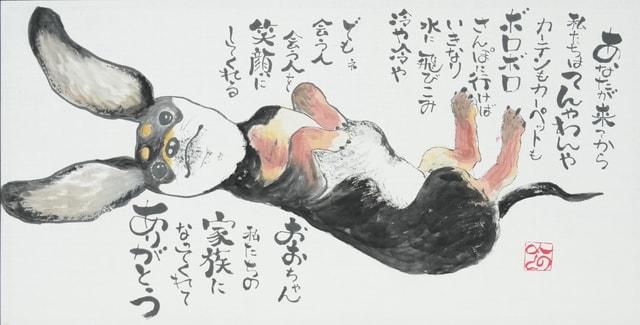 あなたが来てから
私たちはてんやわんや
カーテンもカーペットも
ボロボロ
さんぽに行けば
いきなり
水に飛びこみ
冷や冷や
でもネ
会う人
会う人を
笑顔に
してくれる
おおちゃん
私たちの
家族に
なってくれて
ありがとう